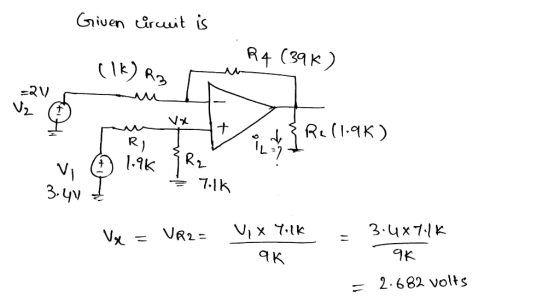 Given circuit is
R4 (39K)
(1K) R3
=2V
V2
Vx
R1
1.9K
R2
7.1K
V1
3.4V
iL=?
RL (1.9K)
Vx = VR2 = V1 x 7.1K / 9K = 3.4x7.1K / 9K
= 2.682 volts